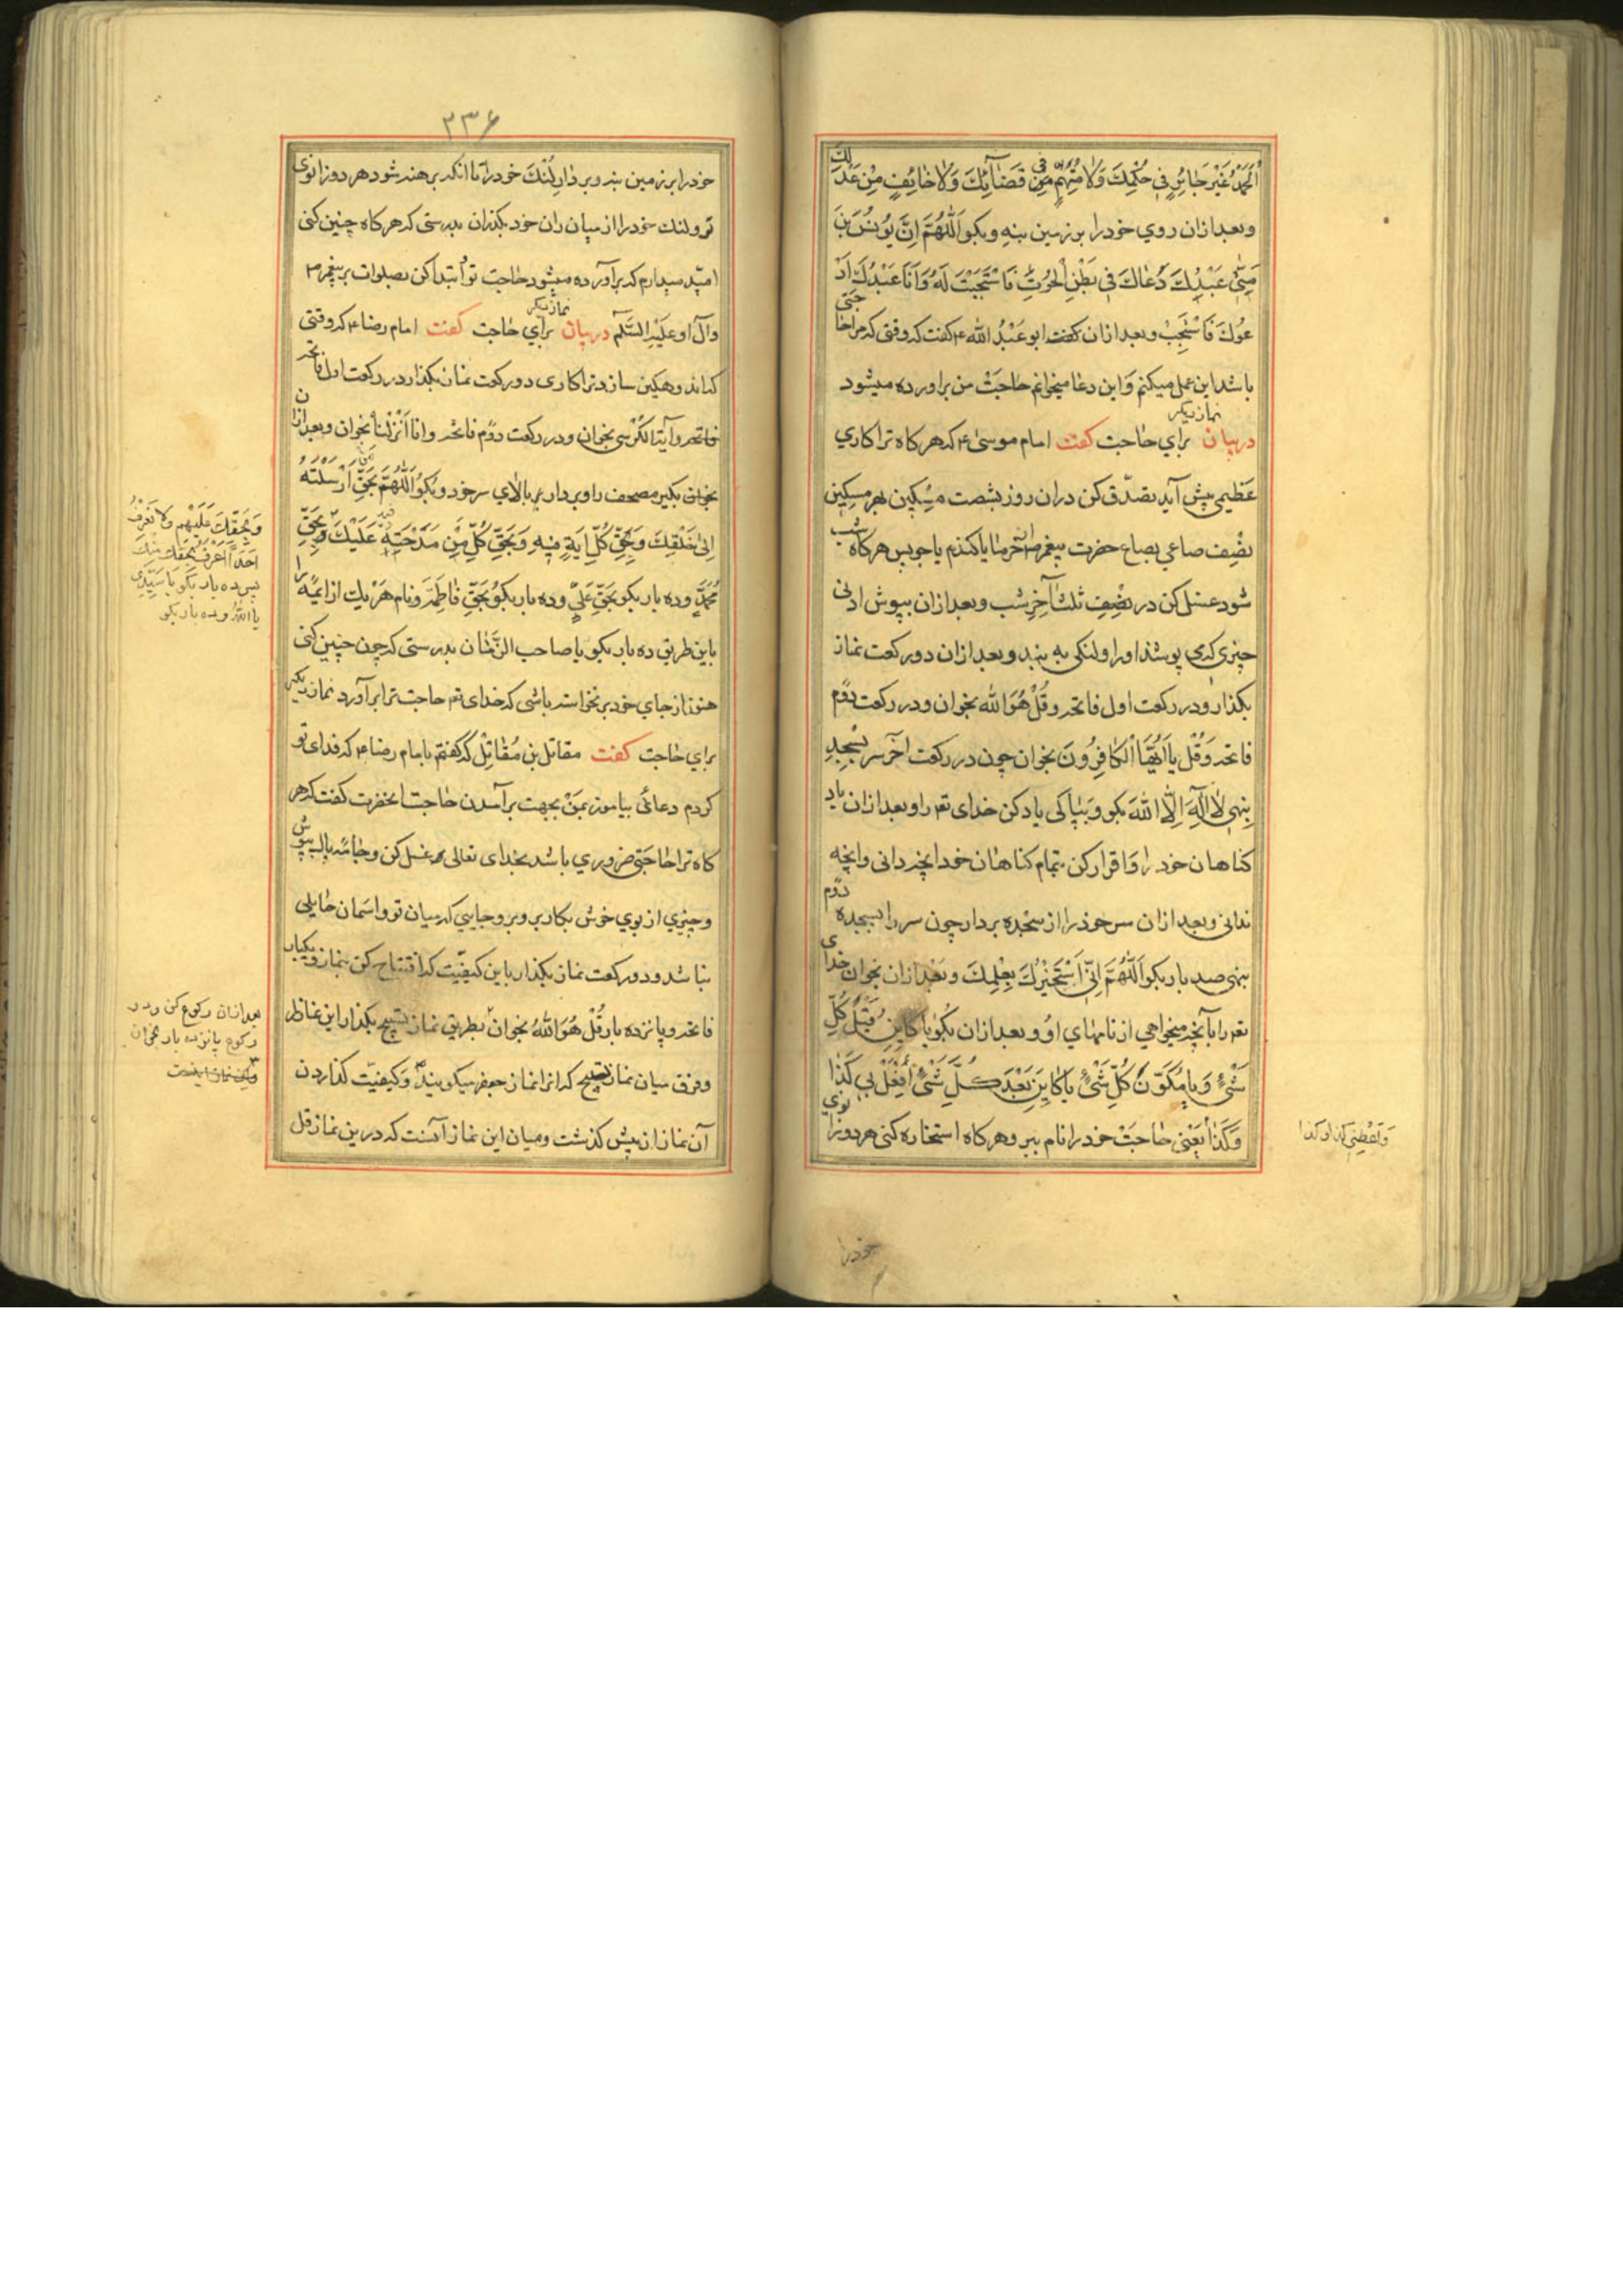 الحَمْدُ غَيْرَ جَائِرٍ فِي حُكْمِكَ وَلَا مُتَّهَمٍ فِي قَضَائِكَ وَلَا خَائِفٍ مِنْ عَدْلِكَ
وبعد ازان روي خود را بر زمين بنه وبكو اَللّٰهُمَّ اِنَّ يُونُسَ بْنَ
مَتّٰى عَبْدِكَ دَعَاكَ فِي بَطْنِ الْحُوتِ فَاسْتَجَبْتَ لَهُ وَاَنَا عَبْدُكَ اَدْ
عُوكَ فَاسْتَجِبْ وبعد ازان كفت ابو عَبْدُ الله ع كفت كه وقتى كه مرا حاجتى
باشد اين عمل ميكنم وَاين دعا ميخوانم حاجَتْ من براورده ميشود
دربيان نماز ديكر براي حاجت كفت امام موسىٰ ع كه هر كاه ترا كاري
عَظيمى پيش آيد تصدّق كن دران روز بشصت مِسْكين هر مسكين
نصْف صاعي بصاع حضرت پيغمبر ص از خرما يا كندم يا جو پس هركاه شب
شود غسل كن در نصْفِ ثلث آخِر شب وبعد ازان بپوش ادنى
چيزى كه مى پوشند او را ولنكى به بند وبعد ازان دو ركعت نماز
بكذار ودر ركعت اول فاتحه وقُلْ هُوَ الله بخوان ودر ركعت دوّم
فاتحه وَقُلْ يَا اَيُّهَا الْكَافِرُونَ بخوان چون در ركعت اخر سر بسجده
بنهى لَا اِلٰهَ اِلَّا اللهَ بكو وَبپاكى ياد كن خداى تعه را وبعد ازان ياد
كناهان خود را وَاقرار كن بتمام كناهان خود انچه دانى وانچه
ندانى وبعد ازان سر خود را از سجده بردار چون سر را بسجده دوّم
بنهى صد بار بكو اَللّٰهُمَّ اِنّي اَسْتَخيْرُكَ بِعِلْمِكَ وبَعْد ازان بخوان خداى
تعه را بآنچه ميخواهي از نامهاي اوُ وبعد ازان بكُو يَا كَائِن قَبْلَ كُلِّ
شَيْءٍ وَيَا مُكَوِّنَ كُلِّ شَيْءٍ يَا كَائِنَ بَعْدَ كُلِّ شَيْءٍ اُفْعَلْ بي كَذَا
وَكَذَا يَعْنى حَاجَتْ خود را نام ببر وهركاه استخاره كنى هر دو زانوي
وَاَعْطِنى كذا وكذا
خود را
٢٣۶
خود را بر زمين بنه وبردار لُنْكَ خود را تا انكه برهنه شود هر دو زانوى
تو ولنك خود را از ميان ران خود بكذران بدرستى كه هركاه چنين كنى
اميد ميدارم كه برآورده ميشود حاجت تو اُبتدا كن بصلوات بر پيغمبر ص
وآل او عليهِ السَّلم دربيان نماز ديكر براي حاجت كفت امام رضا ع كه وقتى
كه اندوهكين سازد ترا كارى دو ركعت نماز بكذار در ركعت اول فاتحه
وآية الكُرْسي بخوان ودر ركعت دوّم فاتحه وانا اَنْزَلْناهُ بخوان وبعد ازان
بكير مصحف را وبردار بر بالاي سر خود وبكو اَللّٰهُمَّ بِحَقِّ مَنْ اَرْسَلْتَهُ
اِلىٰ خَلْقِكَ وَبِحَقِّ كُلِّ اٰيَةٍ فيهِ وَبِحَقِّ كُلِّ مَنْ مَدَحْتَهُ فيه عَلَيْكَ وَبِحَقِّ
مُحَمَّدٍ وده بار بكو بحَقِّ عَليٍّ وده بار بكو بِحَقِّ فاطِمَةَ ونام هَر يك از ائمّه را
باين طريق ده بار بكو يا صاحب الزَّمان بدرستى كه چون چنين كنى
هنوز از جاي خود برنخواسته باشى كه خداى تعه حاجت ترا برآورد نماز ديكر
براي حاجت كفت مقاتل بن مُقاتِلْ كه كفتم با امام رضا ع كه فداى تو
كردم دعائى بياموز بمَنْ بجهت برآمدن حاجت انحضرت كفت كه هر
كاه ترا حاجَتى ضروري باشد بخداى تعالى غسل كن وجامه پاك بپوش
وچيزي از بوي خوش بكار بر وبرو جايى كه ميان تو واسمان حايلى
نباشد ودو ركعت نماز بكذار باين كيفيّت كه افتتاح كن بنماز ويكبار
فاتحه وپانزده بار قُلْ هُوَ اللهُ بخوان بطريق نماز تسبيح بكذار اين نماز را
وفرق ميان نماز تسبيح كه انرا نماز جعفر ميكويند وَكيفيّت كذاردن
آن نماز از پيش كذشت وميان اين نماز آنست كه درين نماز قل
وَبِحَقِّكَ عَلَيْهِم فلا نَعْرِفُ
اَحَداً اَعْرَفَ بِحَقِّكَ مِنْكَ
پس ده بار بكو يا سَيِّدِى
يا اللهُ وده بار بكو
بعد ازان ركوع كن ودر
ركوع پانزده بار بخوان